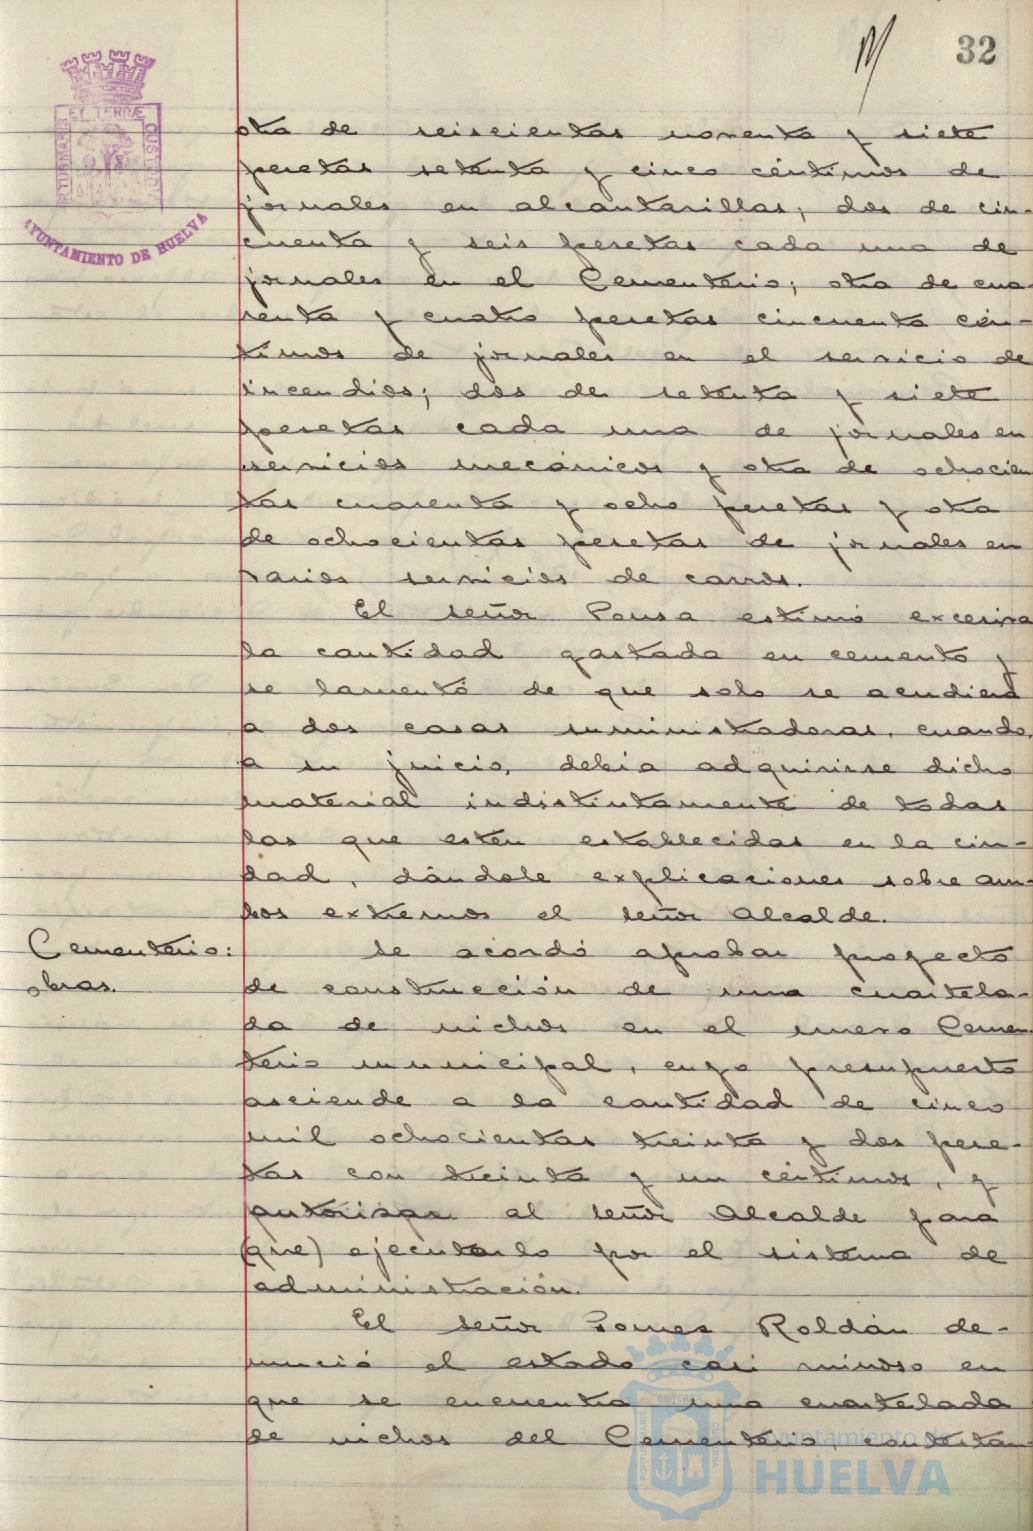 32
PORTUS MARIS ET TERRÆ CUSTODIA
AYUNTAMIENTO DE HUELVA
otra de seiscientas noventa y siete
pesetas setenta y cinco céntimos de
jornales en alcantarillas; dos de cin-
cuenta y seis pesetas cada una de
jornales en el Cementerio; otra de cua-
renta y cuatro pesetas cincuenta cén-
timos de jornales en el servicio de
incendios; dos de setenta y siete
pesetas cada una de jornales en
servicios mecánicos y otra de ochocien
tas cuarenta y ocho pesetas y otra
de ochocientas pesetas de jornales en
varios servicios de carros.
El señor Ponsa estimó excesiva
la cantidad gastada en cemento y
se lamentó de que solo se acudiera
a dos casas suministradoras, cuando,
a su juicio, debía adquirirse dicho
material indistintamente de todas
las que estén establecidas en la ciu-
dad, dándole explicaciones sobre am-
bos extremos el señor Alcalde.
Cementerio:
obras.
Se acordó aprobar proyecto
de construcción de una cuartela-
da de nichos en el nuevo Cemen
terio municipal, cuyo presupuesto
asciende a la cantidad de cinco
mil ochocientas treinta y dos pese-
tas con treinta y un céntimos, y
autorizar al señor Alcalde para
(que) ejecutarlo por el sistema de
administración.
El señor Pomes Roldán de-
nunció el estado casi ruinoso en
que se encuentra una cuartelada
de nichos del Cementerio, contestán-
Ayuntamiento de
HUELVA